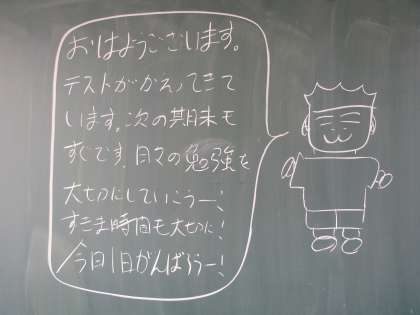 おはようございます。
テストがかえってきて
います。次の期末も
すぐです。日々の勉強を
大切にしていこうー!
すきま時間も大切に!
今日1日がんばろうー!